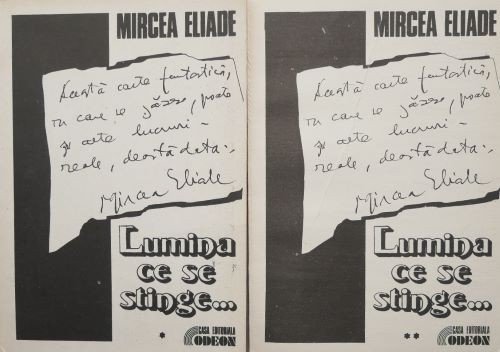 MIRCEA ELIADE
Această carte fantastică,
cu care se
și alte lucruri -
reale, deastădata:.
Mircea Eliade
Lumina
ce se
stinge...
*
CASA EDITORIALA
ODEON
MIRCEA ELIADE
Această carte fantastică,
cu care se
și alte lucruri -
reale, deastădata:.
Mircea Eliade
Lumina
ce se
stinge...
**
CASA EDITORIALA
ODEON